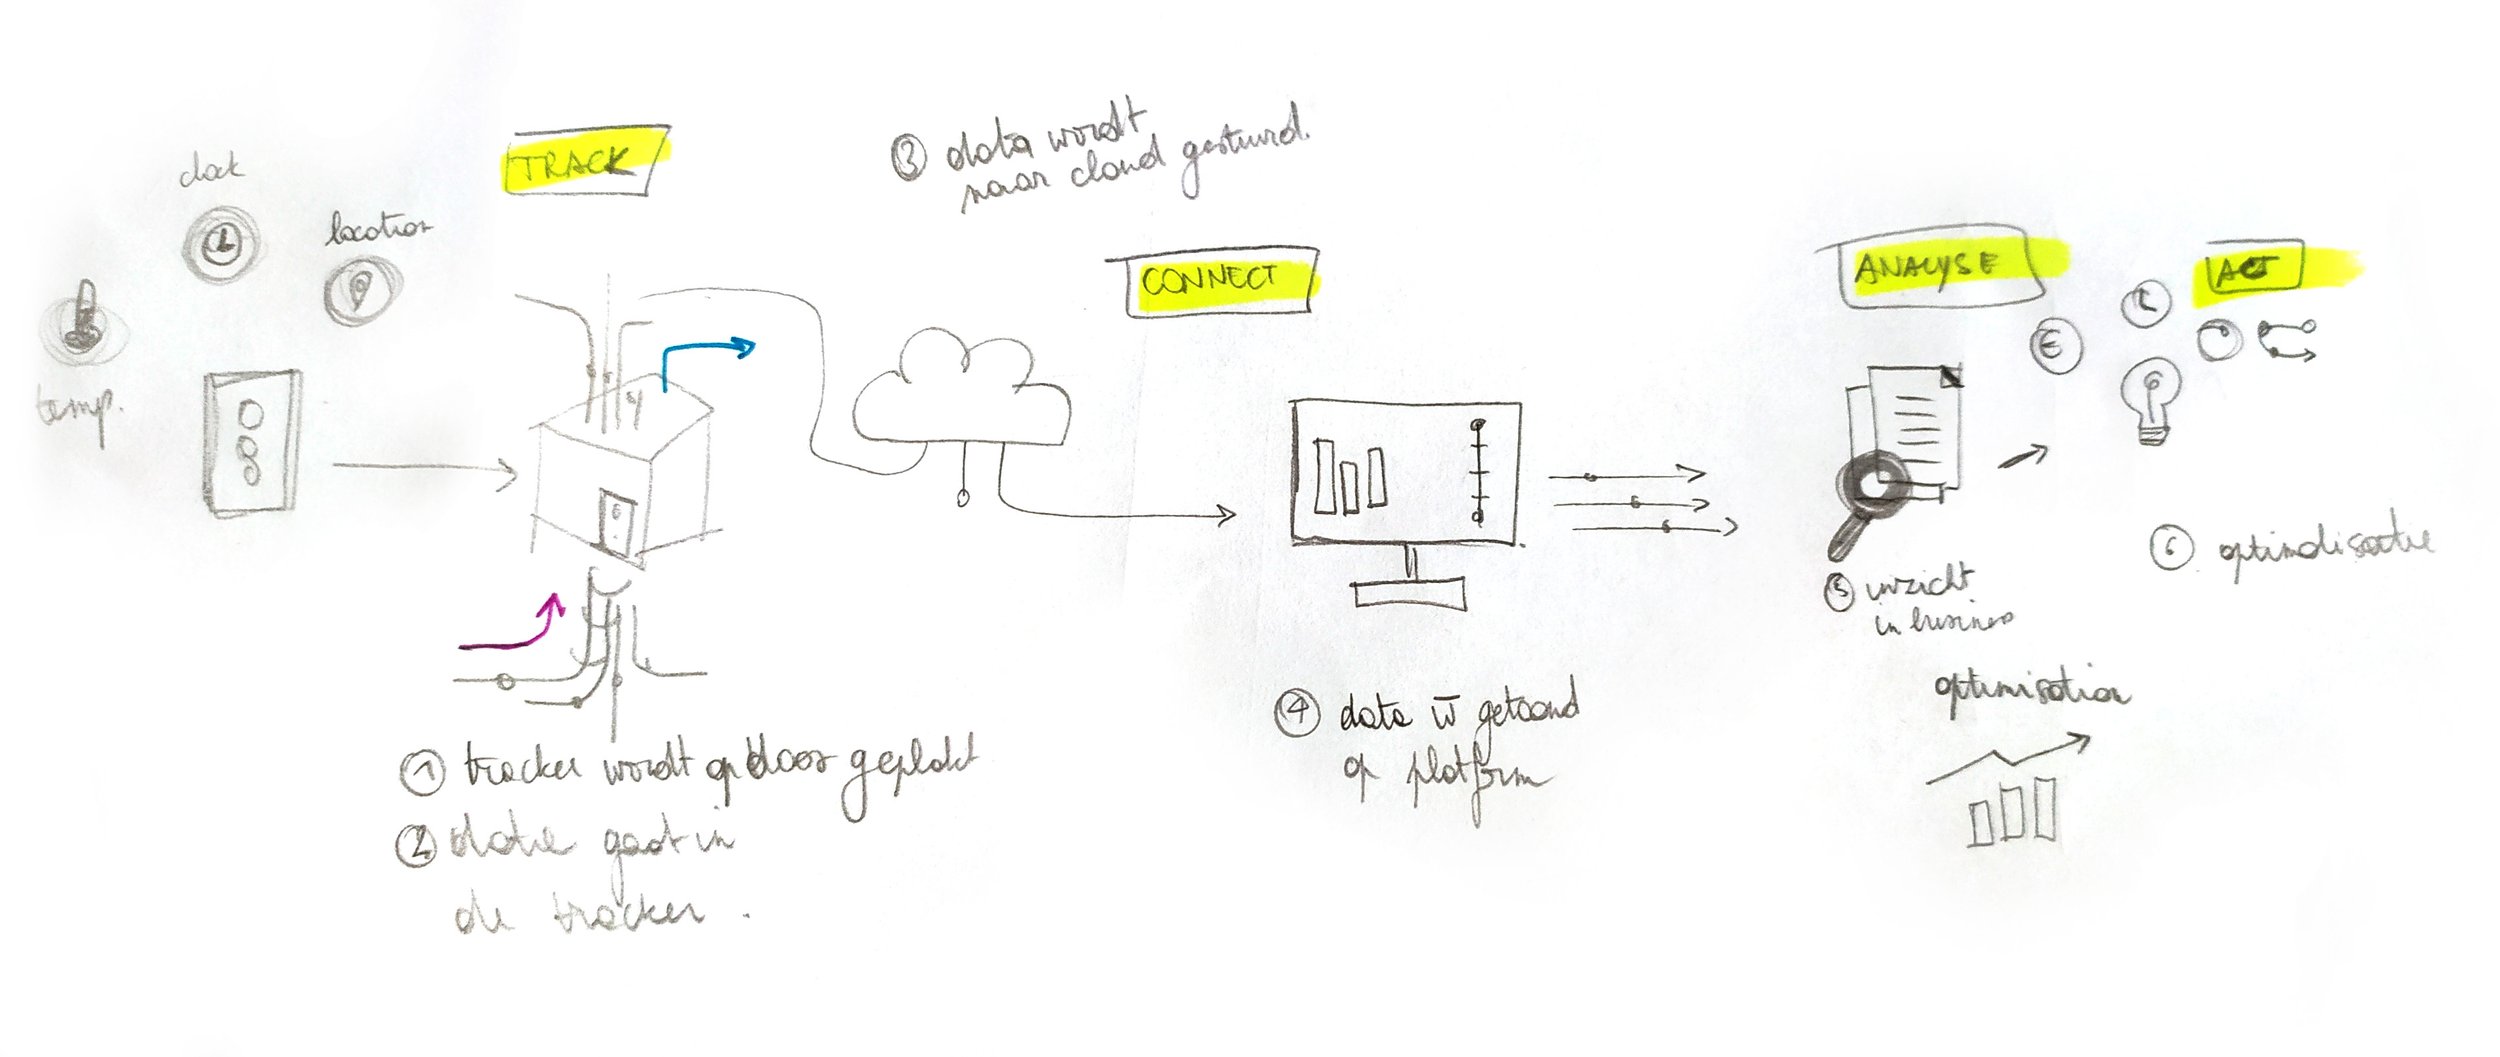 clock
location
temp.
TRACK
③ data wordt
naar cloud gestuurd.
CONNECT
ANALYSE
ACT
€
① tracker wordt op doos geplakt
② data gaat in
de tracker.
④ data w̄ getoond
op platform
⑤ inzicht
in business
⑥ optimalisatie
optimisation